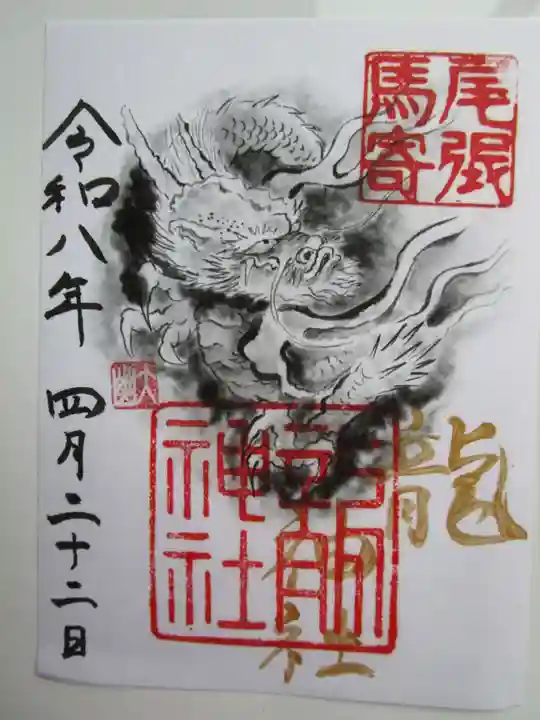 尾張
馬寄
龍神社
龍神社
令和八年 四月二十二日